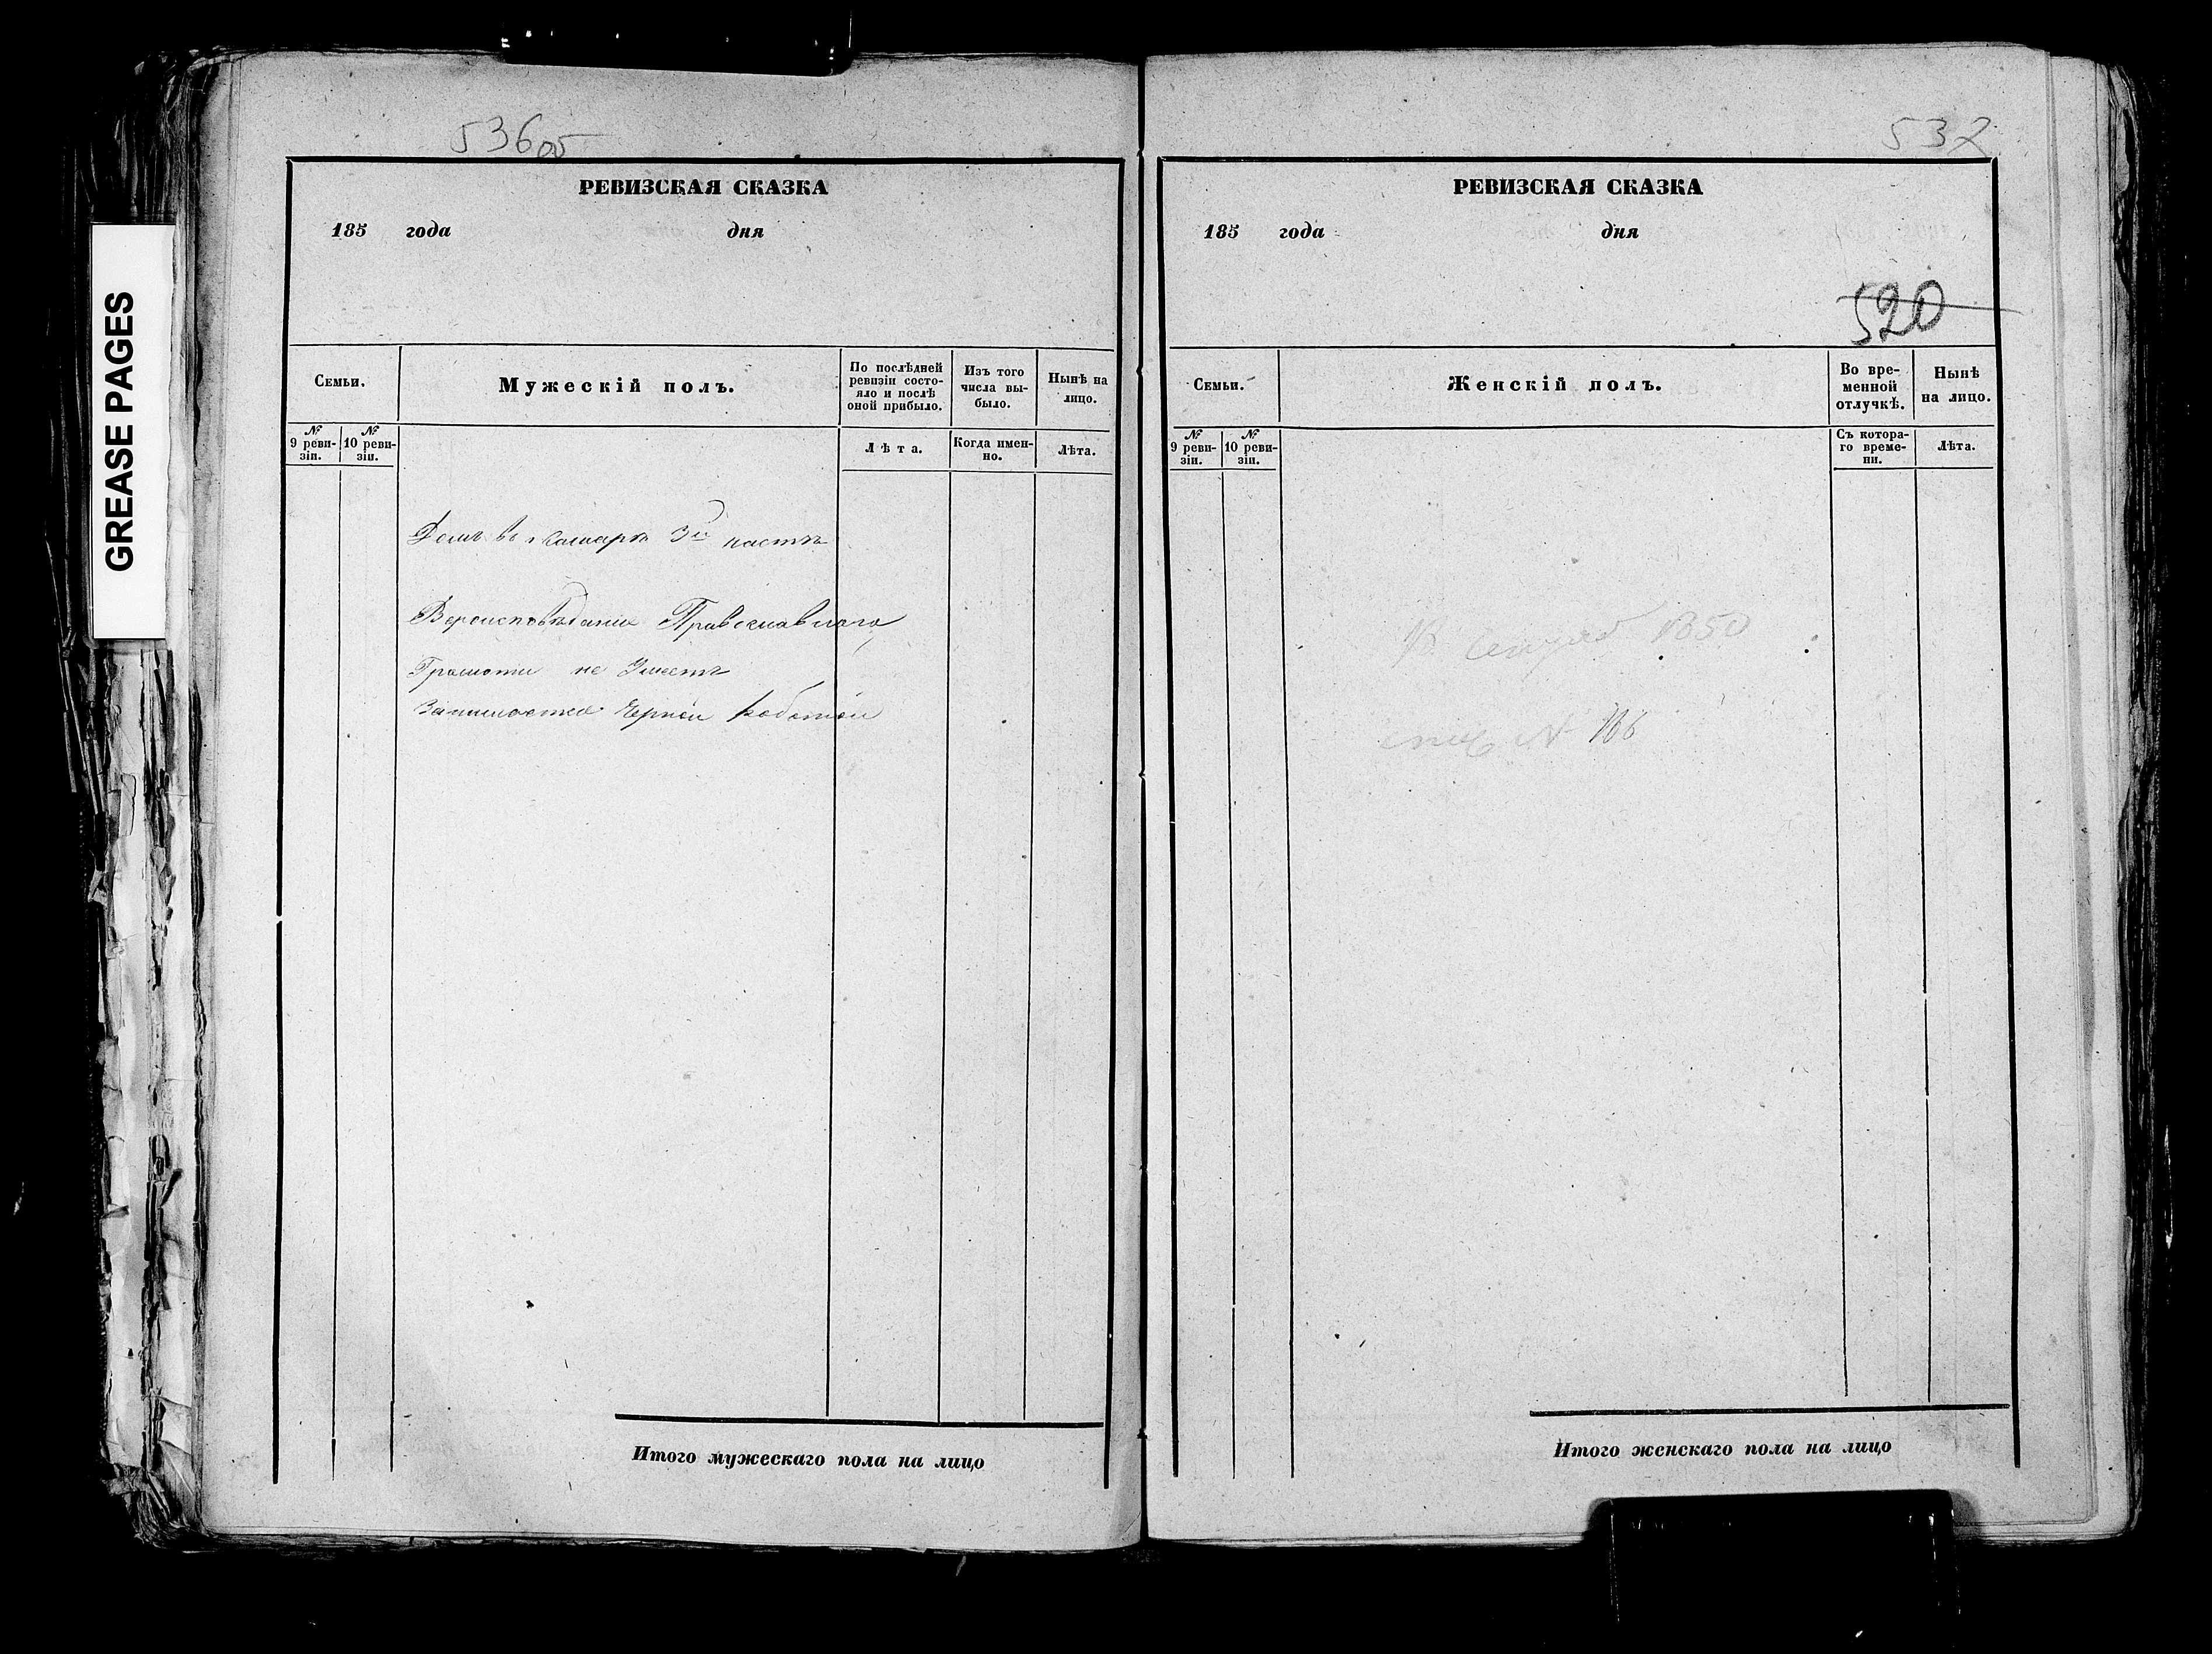 GREASE PAGES
536об
РЕВИЗСКАЯ СКАЗКА
185 года дня
Семьи.
Мужескій полъ.
По послѣдней ревизіи состо-
яло и послѣ
оной прибыло.
Изъ того
числа вы-
было.
Нынѣ на
лицо.
№ 9 реви-
зіи.
№ 10 реви-
зіи.
Лѣта.
Когда имен-
но.
Лѣта.
Домъ въ 3й части
Вероисповѣданія Православнаго
Грамоти не Умеетъ
Занимается Черной работой
Итого мужескаго пола на лицо
532
РЕВИЗСКАЯ СКАЗКА
185 года дня
520
Семьи.
Женскій полъ.
Во вре-
менной
отлучкѣ.
Нынѣ
на лицо.
№ 9 реви-
зіи.
№ 10 реви-
зіи.
Съ котора-
го време-
ни.
Лѣта.
1850
№ 166
Итого женскаго пола на лицо